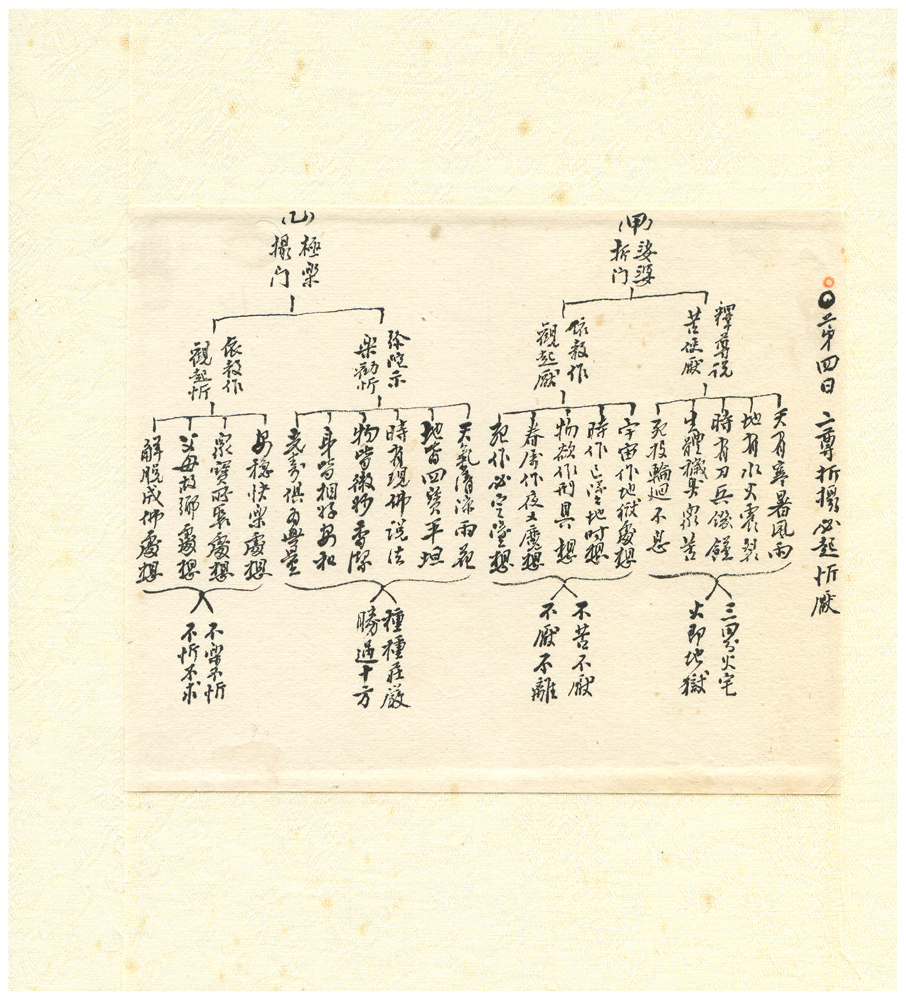 二第四日 二尊折攝必起忻厭
(甲)
娑婆
折门
釋尊説
苦使厭
天有寒暑風雨
地有水火震裂
時有刀兵饑饉
生體穢臭衆苦
死投輪迴不息
三界火宅
火即地獄
依教作
觀起厭
宇宙作地獄處想
時作已墮地时想
物欲作刑具想
眷屬作夜叉魔想
死作必定墮想
不苦不厭
不厭不離
(乙)
極樂
攝门
樂勸忻
天氣清涼雨花
地皆四寶平坦
時有現佛説法
物皆微妙香潔
身皆相好安和
光壽俱为無量
種種莊嚴
勝過十方
依教作
觀起忻
安穩快樂處想
衆寶所聚處想
父母故鄉處想
解脱成佛處想
不樂不忻
不忻不求